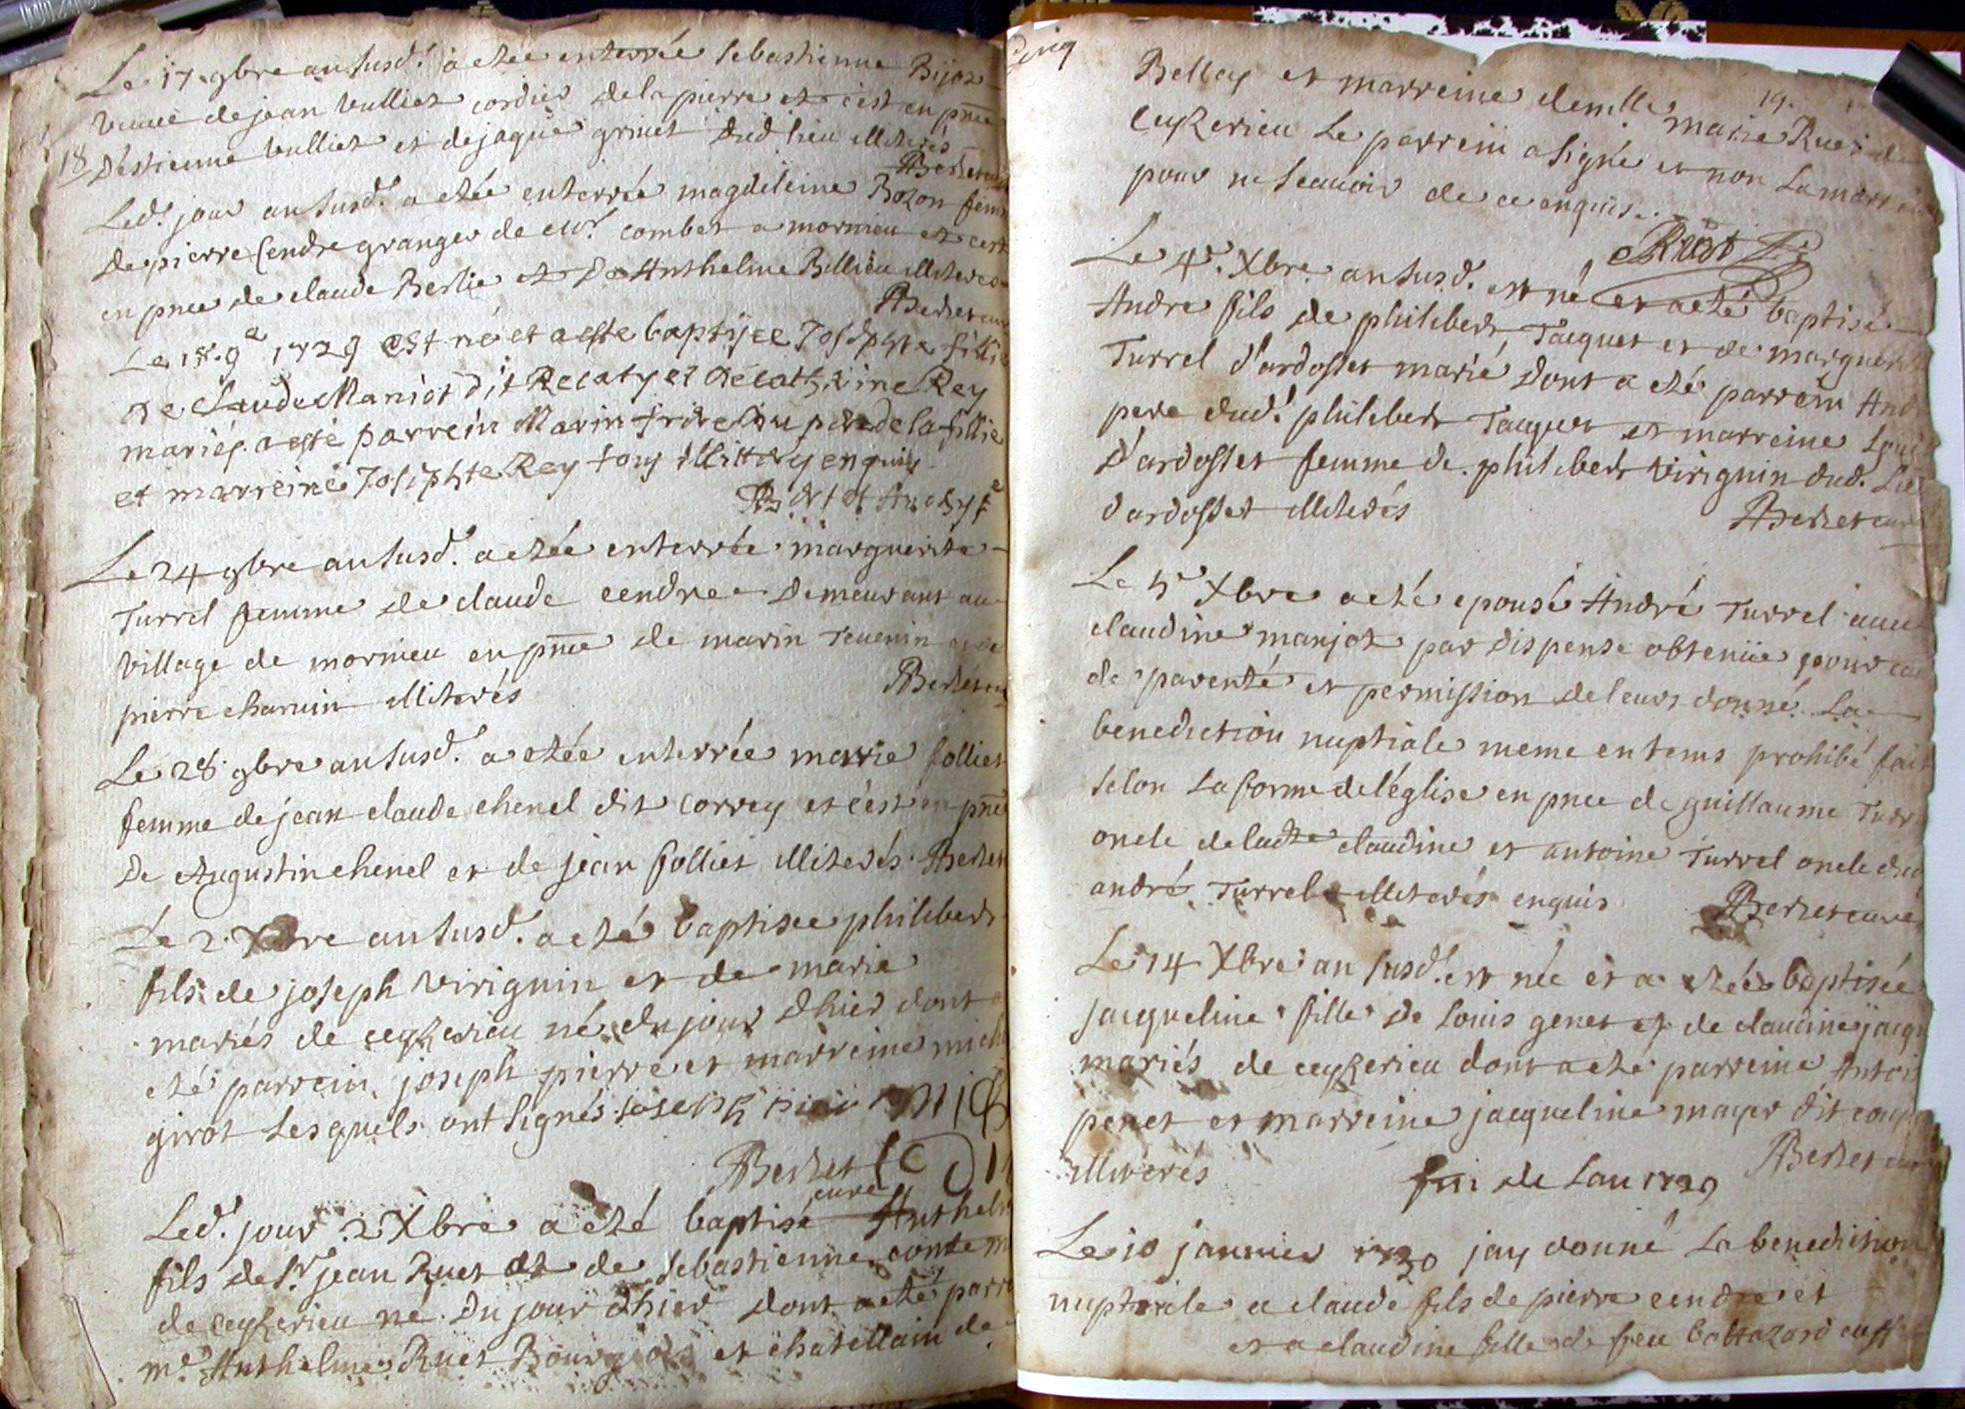 Le 17 9bre an susd. a etée enterrée Sebastienne Bijoz
veuve de jean Vulliet cordier de la pierre et c'est en pnce
18 D'estienne Vulliet et de jaque grinet dud lieu illiterés
Berzet
Led. jour an susd. a etée enterrée magdeleine Bozon fem
de pierre Cendre granger de combet a mornieu et c'est
en pnce de claude Berlie et De Anthelme Billieu illiteres
Berzet cur
Le 18 9e 1729 est né et a este baptisee Josephte fillie
de Claude Maniot dit Recaty et de Catherine Rey
mariés a esté parrein Marin frere du pere de la fillie
et marreine Josephte Rey tous illitterys enquis
Le 24 9bre an susd. a etée enterrée marguerite
Turrel femme de claude cendre Demeurant au
village de mornieu en pnce de marin Tevenin
pierre charvin illiterés Berzet cu
Le 28 9bre an susd. a etée enterrée marie folliet
femme de jean claude chenel dit correy et c'est en pnce
De Augustin chenel et de jean folliet illiterés Berzet
Le 2 Xbre an susd. a eté baptisee philibert
fils de joseph virignin et de marie
mariés de ceyzerieu né du jour d'hier dont a
eté parrein joseph pierre et marreine mich
girot lesquels ont signés joseph pier mich
Berzet
curé
Led. jour 2 Xbre a eté baptisé Anthel
fils de Sr jean Ruet et de Sebastienne conte m
de ceyzerieu né Du jour d'hier dont a eté parre
me. Anthelme Ruet Bourgeois et chatellain de
19.
Belley et marreine demlle marie Ruet de
Ceyzerieu Le parrein a signé et non La marrei
pour ne scavoir de ce enquise.
Ruet
Le 4e. Xbre an susd. est né et a eté baptisé
Andre fils de philibert Jacquet et de marguerit
Turrel d'ardosset marié dont a eté parrein And
pere dud. philibert Jacquet et marreine
D'ardosset femme de philibert virignin dud. Lie
d'ardosset illiterés Berzet curé
Le 5e Xbre a eté epousé André Turrel avec
claudine manjot par dispense obtenüe pour ca
de parenté et permission de leurs donné La
benediction nuptiale meme en tems prohibé fait
selon la forme de l'église en pnce de guillaume Turr
oncle de ladte claudine et antoine Turrel oncle dud
andré Turrel illiterés enquis Berzet curé
Le 14 Xbre an susd. est née et a etée baptisée
jacqueline fille De Louis genet et de claudine jacqu
mariés de ceyzerieu dont a eté parreine Antoi
penet et marreine jacqueline mayer dit coup
illiterés Berzet cur
fin de Lan 1729
Le 10 janvier 1730 jay donné La benediction
nuptiale a claude fils de pierre cendre et
et a claudine fille de feu baltazard cuff